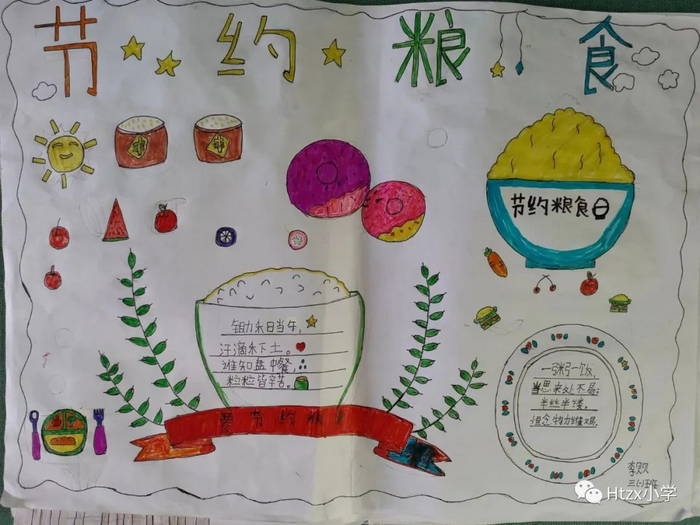 节约粮食
节约粮食日
锄禾日当午，
汗滴禾下土。
谁知盘中餐，
粒粒皆辛苦。
节约粮
一粥一饭，
当思来处不易；
半丝半缕，
恒念物力维艰。
三(1)班
Htzx小学